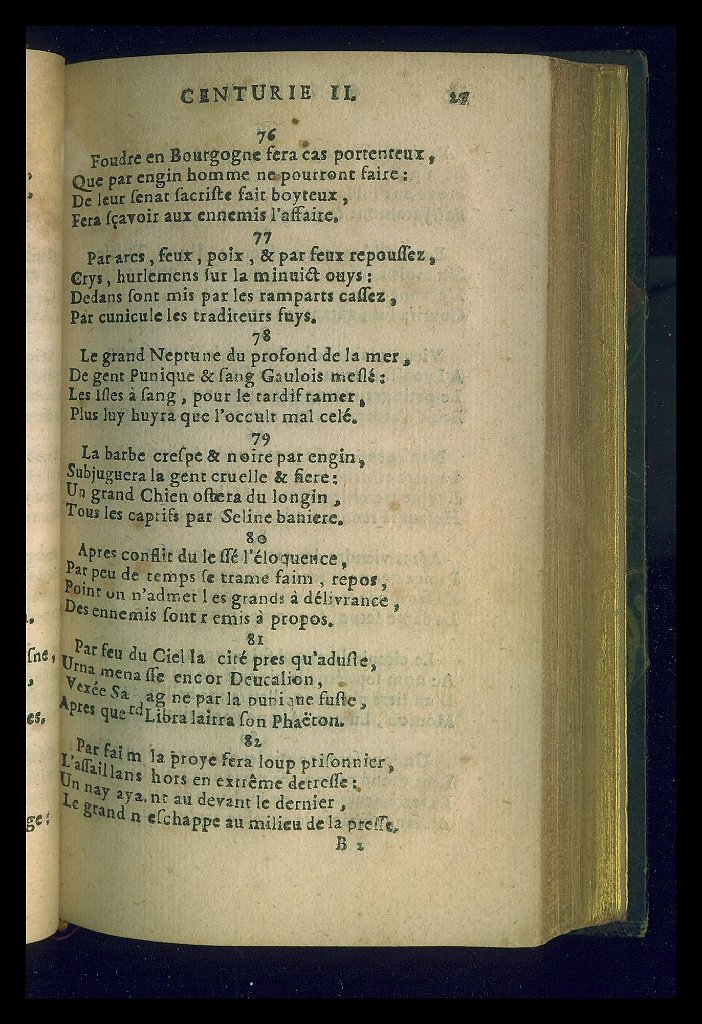 CENTURIE II. 27
76
Foudre en Bourgogne fera cas portenteux,
Que par engin homme ne pourront faire:
De leur ſenat ſacriſte fait boyteux,
Fera ſçavoir aux ennemis l'affaire.
77
Par arcs, feux, poix, & par feux repouſſez,
Crys, hurlemens ſur la minuict ouys:
Dedans ſont mis par les ramparts caſſez,
Par cunicule les traditeurs fuys.
78
Le grand Neptune du profond de la mer,
De gent Punique & ſang Gaulois meſlé:
Les Iſles à ſang, pour le tardif ramer,
Plus luy huyra que l'occult mal celé.
79
La barbe creſpe & noire par engin,
Subjuguera la gent cruelle & fiere:
Un grand Chien oſtera du longin,
Tous les captifs par Seline baniere.
80
Apres conflit du leſſé l'éloquence,
Par peu de temps ſe trame faim, repos,
Point on n'admet les grands à délivrance,
Des ennemis ſont remis à propos.
81
Par feu du Ciel la cité pres qu'aduſte,
Urna menaſſe encor Deucalion,
Vexée Sardagne par la punique fuſte,
Apres que Libra lairra ſon Phaëton.
82
Par faim la proye fera loup priſonnier,
L'aſſaillans hors en extrême detreſſe:
Un nay ayant au devant le dernier,
Le grand n'eſchappe au milieu de la preſſe.
B 2
ſne,
,
es.
ge: